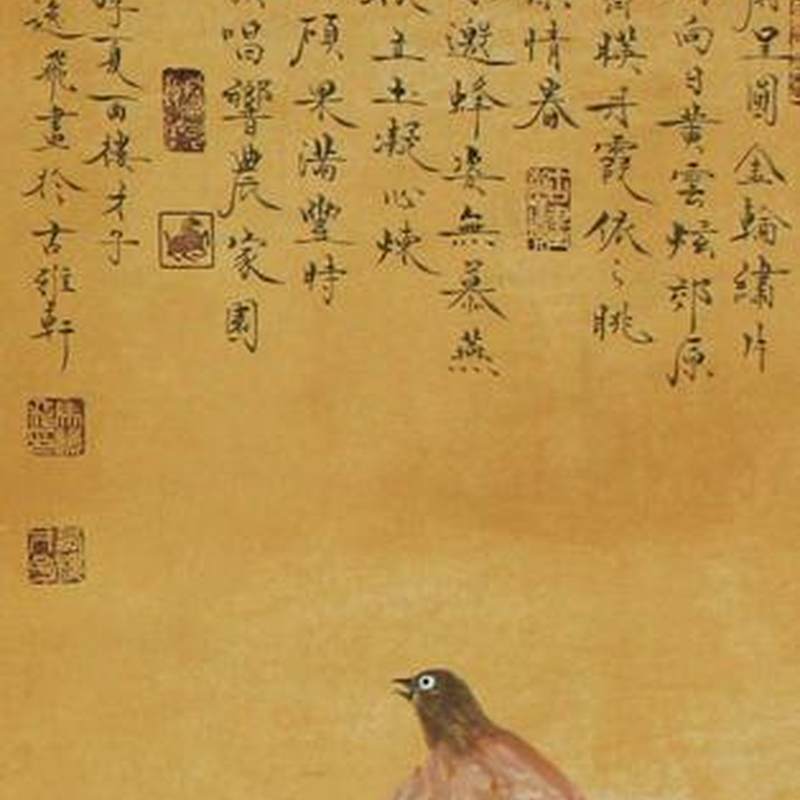 呈圓金輪繡片
向日黃雲炫郊原
暎丹霞依々眺
情眷
邀蜂姿無慕燕
立土凝心煉
碩果滿豐時
唱響農家園
夏西樓才子
逸飛畫於古雅軒